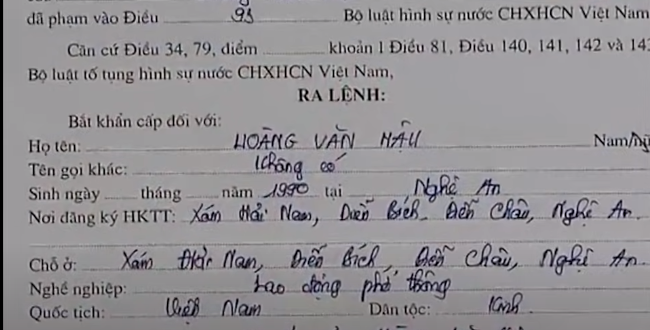 đã phạm vào Điều 93 Bộ luật hình sự nước CHXHCN Việt Nam
Căn cứ Điều 34, 79, điểm khoản 1 Điều 81, Điều 140, 141, 142 và 143
Bộ luật tố tụng hình sự nước CHXHCN Việt Nam,
RA LỆNH:
Bắt khẩn cấp đối với:
Họ tên: HOÀNG VĂN HẬU Nam/Nữ
Tên gọi khác: Không có
Sinh ngày tháng năm 1990 tại Nghệ An
Nơi đăng ký HKTT: Xóm Hải Nam, Diễn Bích, Diễn Châu, Nghệ An
Chỗ ở: Xóm Hải Nam, Diễn Bích, Diễn Châu, Nghệ An
Nghề nghiệp: Lao động phổ thông
Quốc tịch: Việt Nam Dân tộc: Kinh